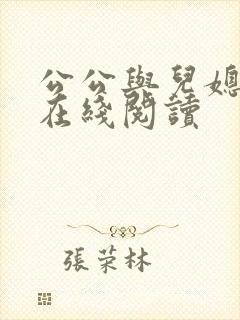 公公與兒媳
在綫閱讀
張荣林